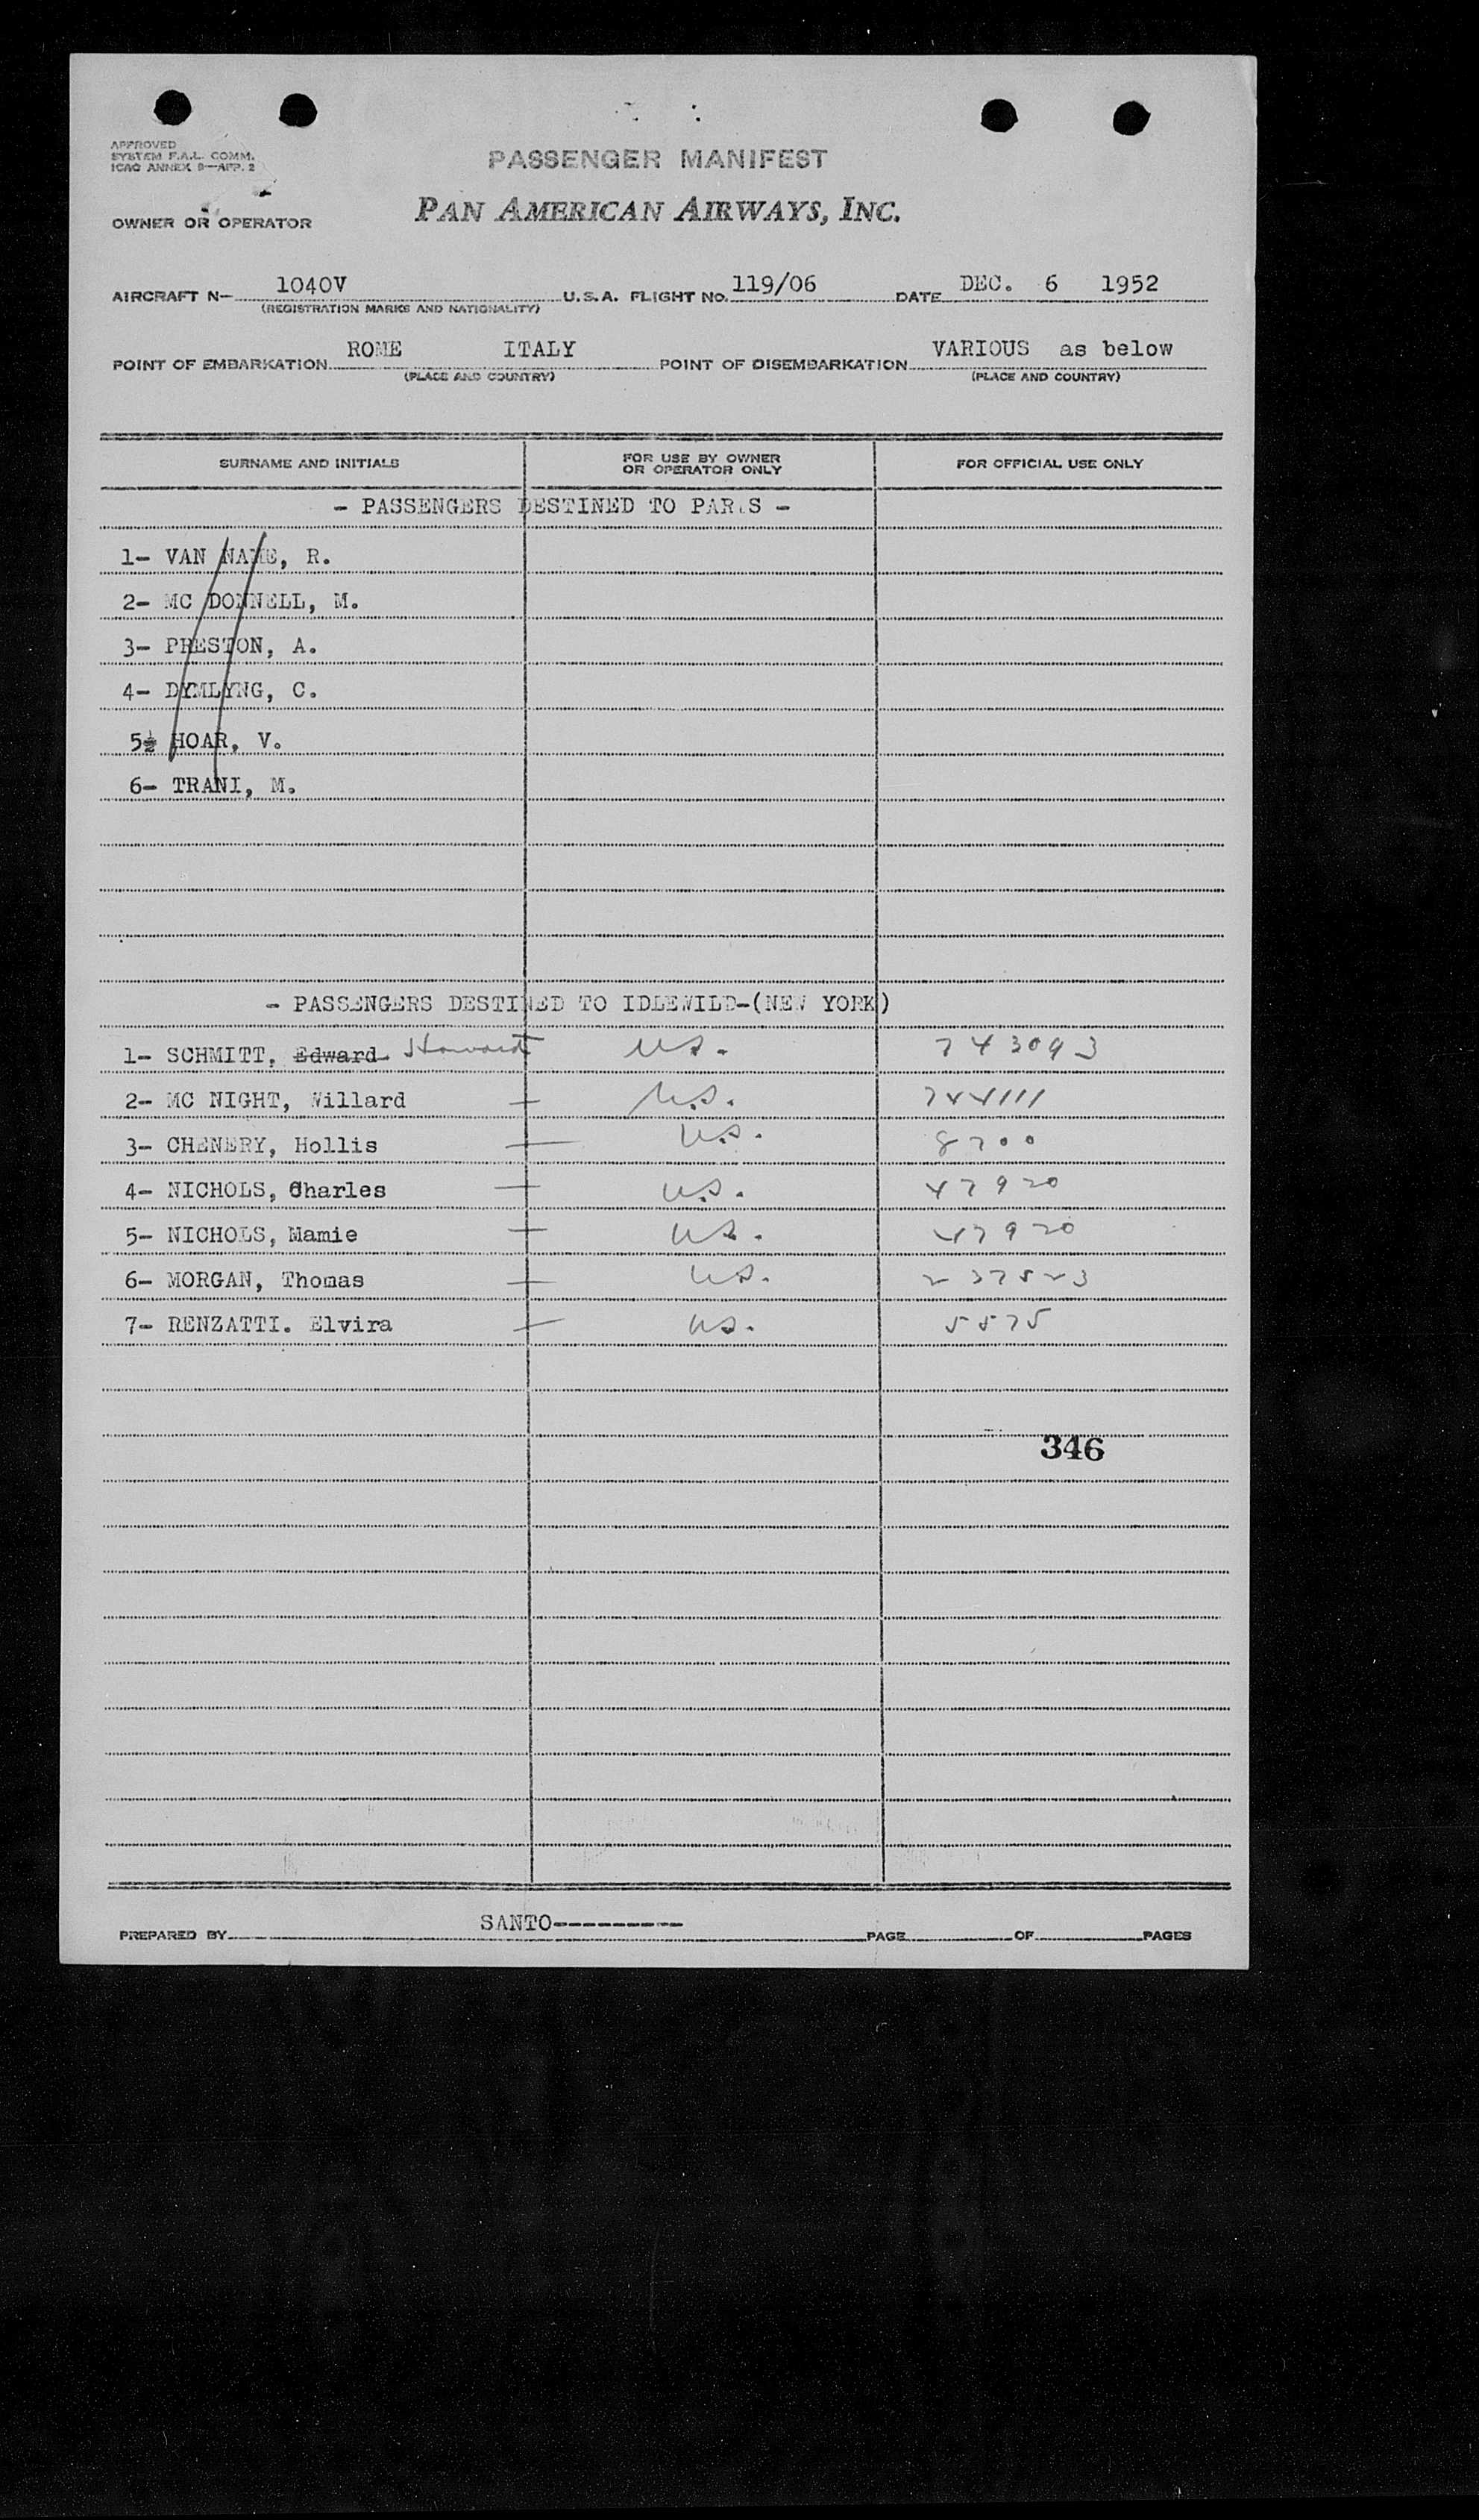 APPROVED
SYSTEM F.A.L. COMM.
ICAO ANNEX 9—APP. 2
PASSENGER MANIFEST
OWNER OR OPERATOR PAN AMERICAN AIRWAYS, INC.
AIRCRAFT N— 1040V U.S.A. FLIGHT NO. 119/06 DATE DEC. 6 1952
(REGISTRATION MARKS AND NATIONALITY)
POINT OF EMBARKATION ROME ITALY POINT OF DISEMBARKATION VARIOUS as below
(PLACE AND COUNTRY) (PLACE AND COUNTRY)
SURNAME AND INITIALS FOR USE BY OWNER OR OPERATOR ONLY FOR OFFICIAL USE ONLY
- PASSENGERS DESTINED TO PARIS -
1- VAN NAME, R.
2- MC DONNELL, M.
3- PRESTON, A.
4- DYMLYNG, C.
5- HOAR, V.
6- TRANI, M.
- PASSENGERS DESTINED TO IDLEWILD-(NEW YORK)
1- SCHMITT, Edward Howard U.S. 743093
2- MC NIGHT, Willard U.S. 744111
3- CHENERY, Hollis U.S. 8700
4- NICHOLS, Charles U.S. 47920
5- NICHOLS, Mamie U.S. 47920
6- MORGAN, Thomas U.S. 237523
7- RENZATTI. Elvira U.S. 5575
346
PREPARED BY SANTO--------- PAGE OF PAGES